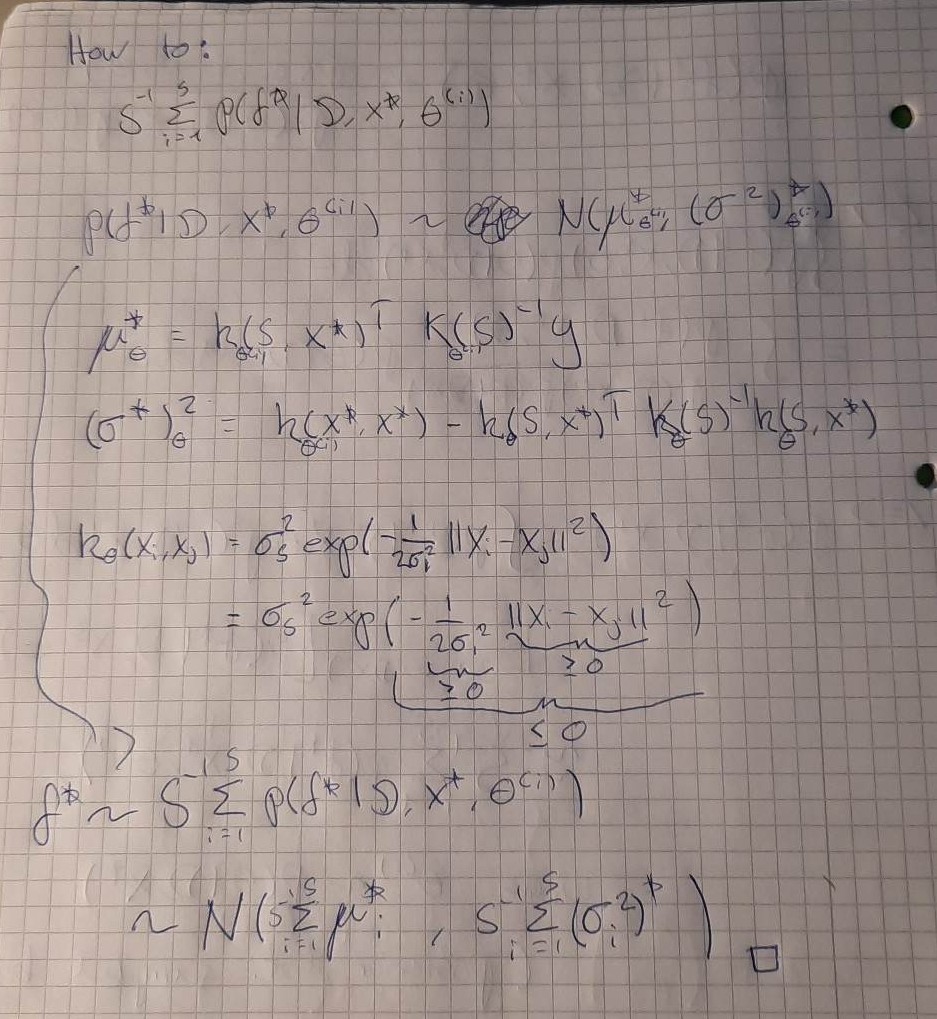 How to:
S⁻¹ Σ_{i=1}^{S} p(f* | D, x*, θ⁽ⁱ⁾)
p(f* | D, x*, θ⁽ⁱ⁾) ~ N(μ*_{θ⁽ⁱ⁾}, (σ²)*_{θ⁽ⁱ⁾})
μ*_θ = k_{θ⁽ⁱ⁾}(S, x*)ᵀ K_{θ⁽ⁱ⁾}(S)⁻¹ y
(σ*)²_θ = k_{θ⁽ⁱ⁾}(x*, x*) - k_θ(S, x*)ᵀ K_θ(S)⁻¹ k_θ(S, x*)
k_θ(x_i, x_j) = σ_s² exp(-1/(2σ_i²) ||x_i - x_j||²)
= σ_s² exp(-1/(2σ_i²) ||x_i - x_j||²)
≥0 ≥0
≤ 0
f* ~ S⁻¹ Σ_{i=1}^{S} p(f* | D, x*, θ⁽ⁱ⁾)
~ N(S⁻¹ Σ_{i=1}^{S} μ*_i, S⁻¹ Σ_{i=1}^{S} (σ_i²)*) □